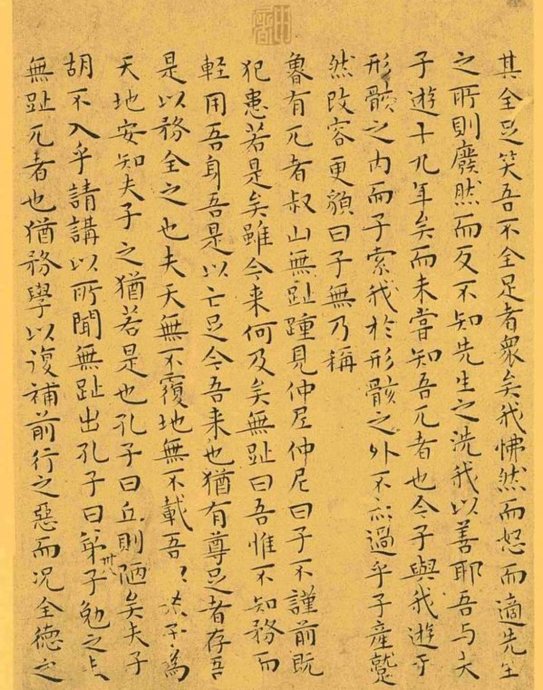 其全足笑吾不全足者衆矣我怫然而怒而適先生
之所則廢然而反不知先生之洗我以善耶吾與夫
子遊十九年矣而未嘗知吾兀者也今子與我遊于
形骸之内而子索我於形骸之外不亦過乎子產蹵
然改容更貌曰子無乃稱
魯有兀者叔山無趾踵見仲尼仲尼曰子不謹前既
犯患若是矣雖今来何及矣無趾曰吾惟不知務而
軽用吾身吾是以亡足今吾来也猶有尊足者存吾
是以務全之也夫天無不覆地無不載吾夫子為
天地安知夫子之猶若是也孔子曰丘則陋矣夫子
胡不入乎請講以所聞無趾出孔子曰弟子勉之
無趾兀者也猶務學以復補前行之惡而况全德之